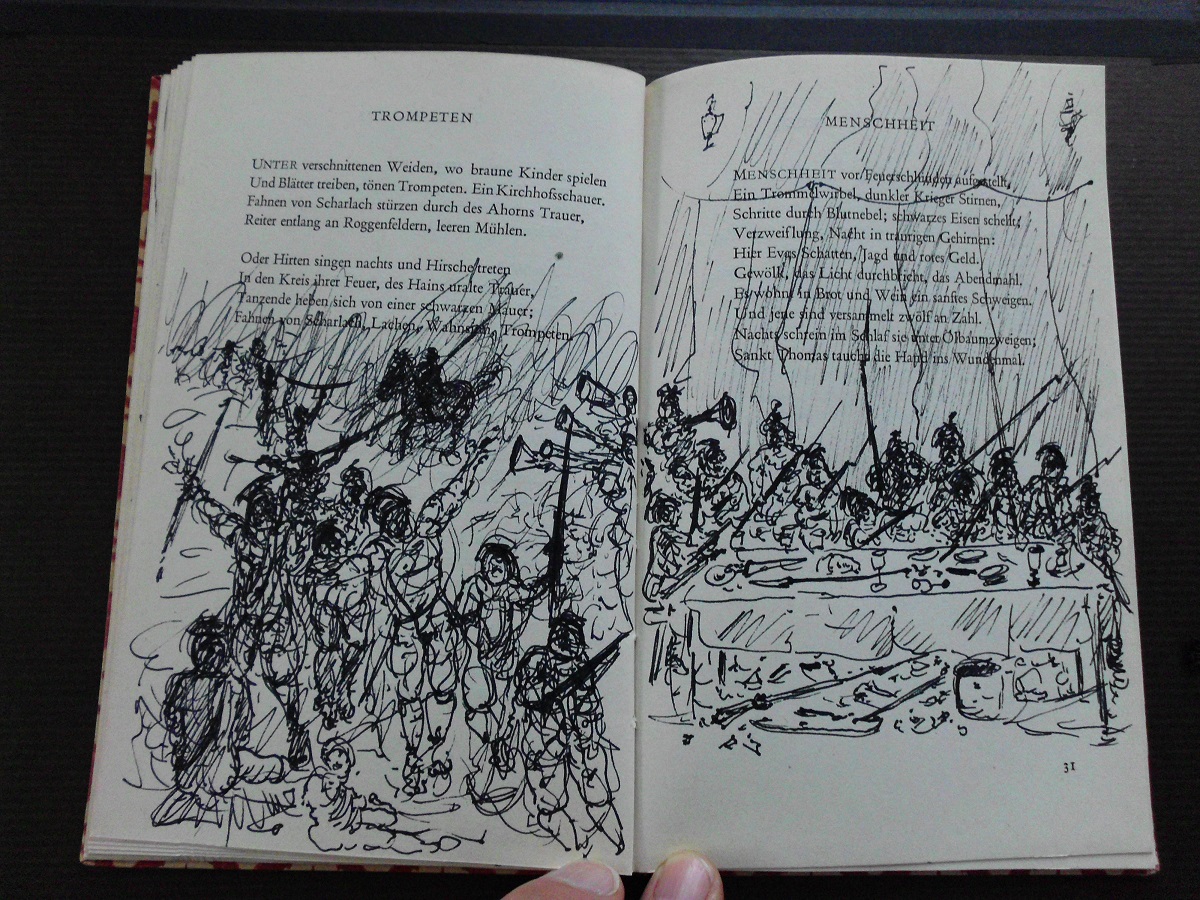 TROMPETEN
UNTER verschnittenen Weiden, wo braune Kinder spielen
Und Blätter treiben, tönen Trompeten. Ein Kirchhofsschauer.
Fahnen von Scharlach stürzen durch des Ahorns Trauer,
Reiter entlang an Roggenfeldern, leeren Mühlen.
Oder Hirten singen nachts und Hirsche treten
In den Kreis ihrer Feuer, des Hains uralte Trauer,
Tanzende heben sich von einer schwarzen Mauer;
Fahnen von Scharlach, Lachen, Wahnsinn, Trompeten.
MENSCHHEIT
MENSCHHEIT vor Feuerschlünden aufgestellt,
Ein Trommelwirbel, dunkler Krieger Stirnen,
Schritte durch Blutnebel; schwarzes Eisen schellt;
Verzweiflung, Nacht in traurigen Gehirnen:
Hier Evas Schatten, Jagd und rotes Geld.
Gewölk, das Licht durchbricht, das Abendmahl.
Es wohnt in Brot und Wein ein sanftes Schweigen.
Und jene sind versammelt zwölf an Zahl.
Nachts schrein im Schlaf sie unter Ölbaumzweigen;
Sankt Thomas taucht die Hand ins Wundenmal.
31